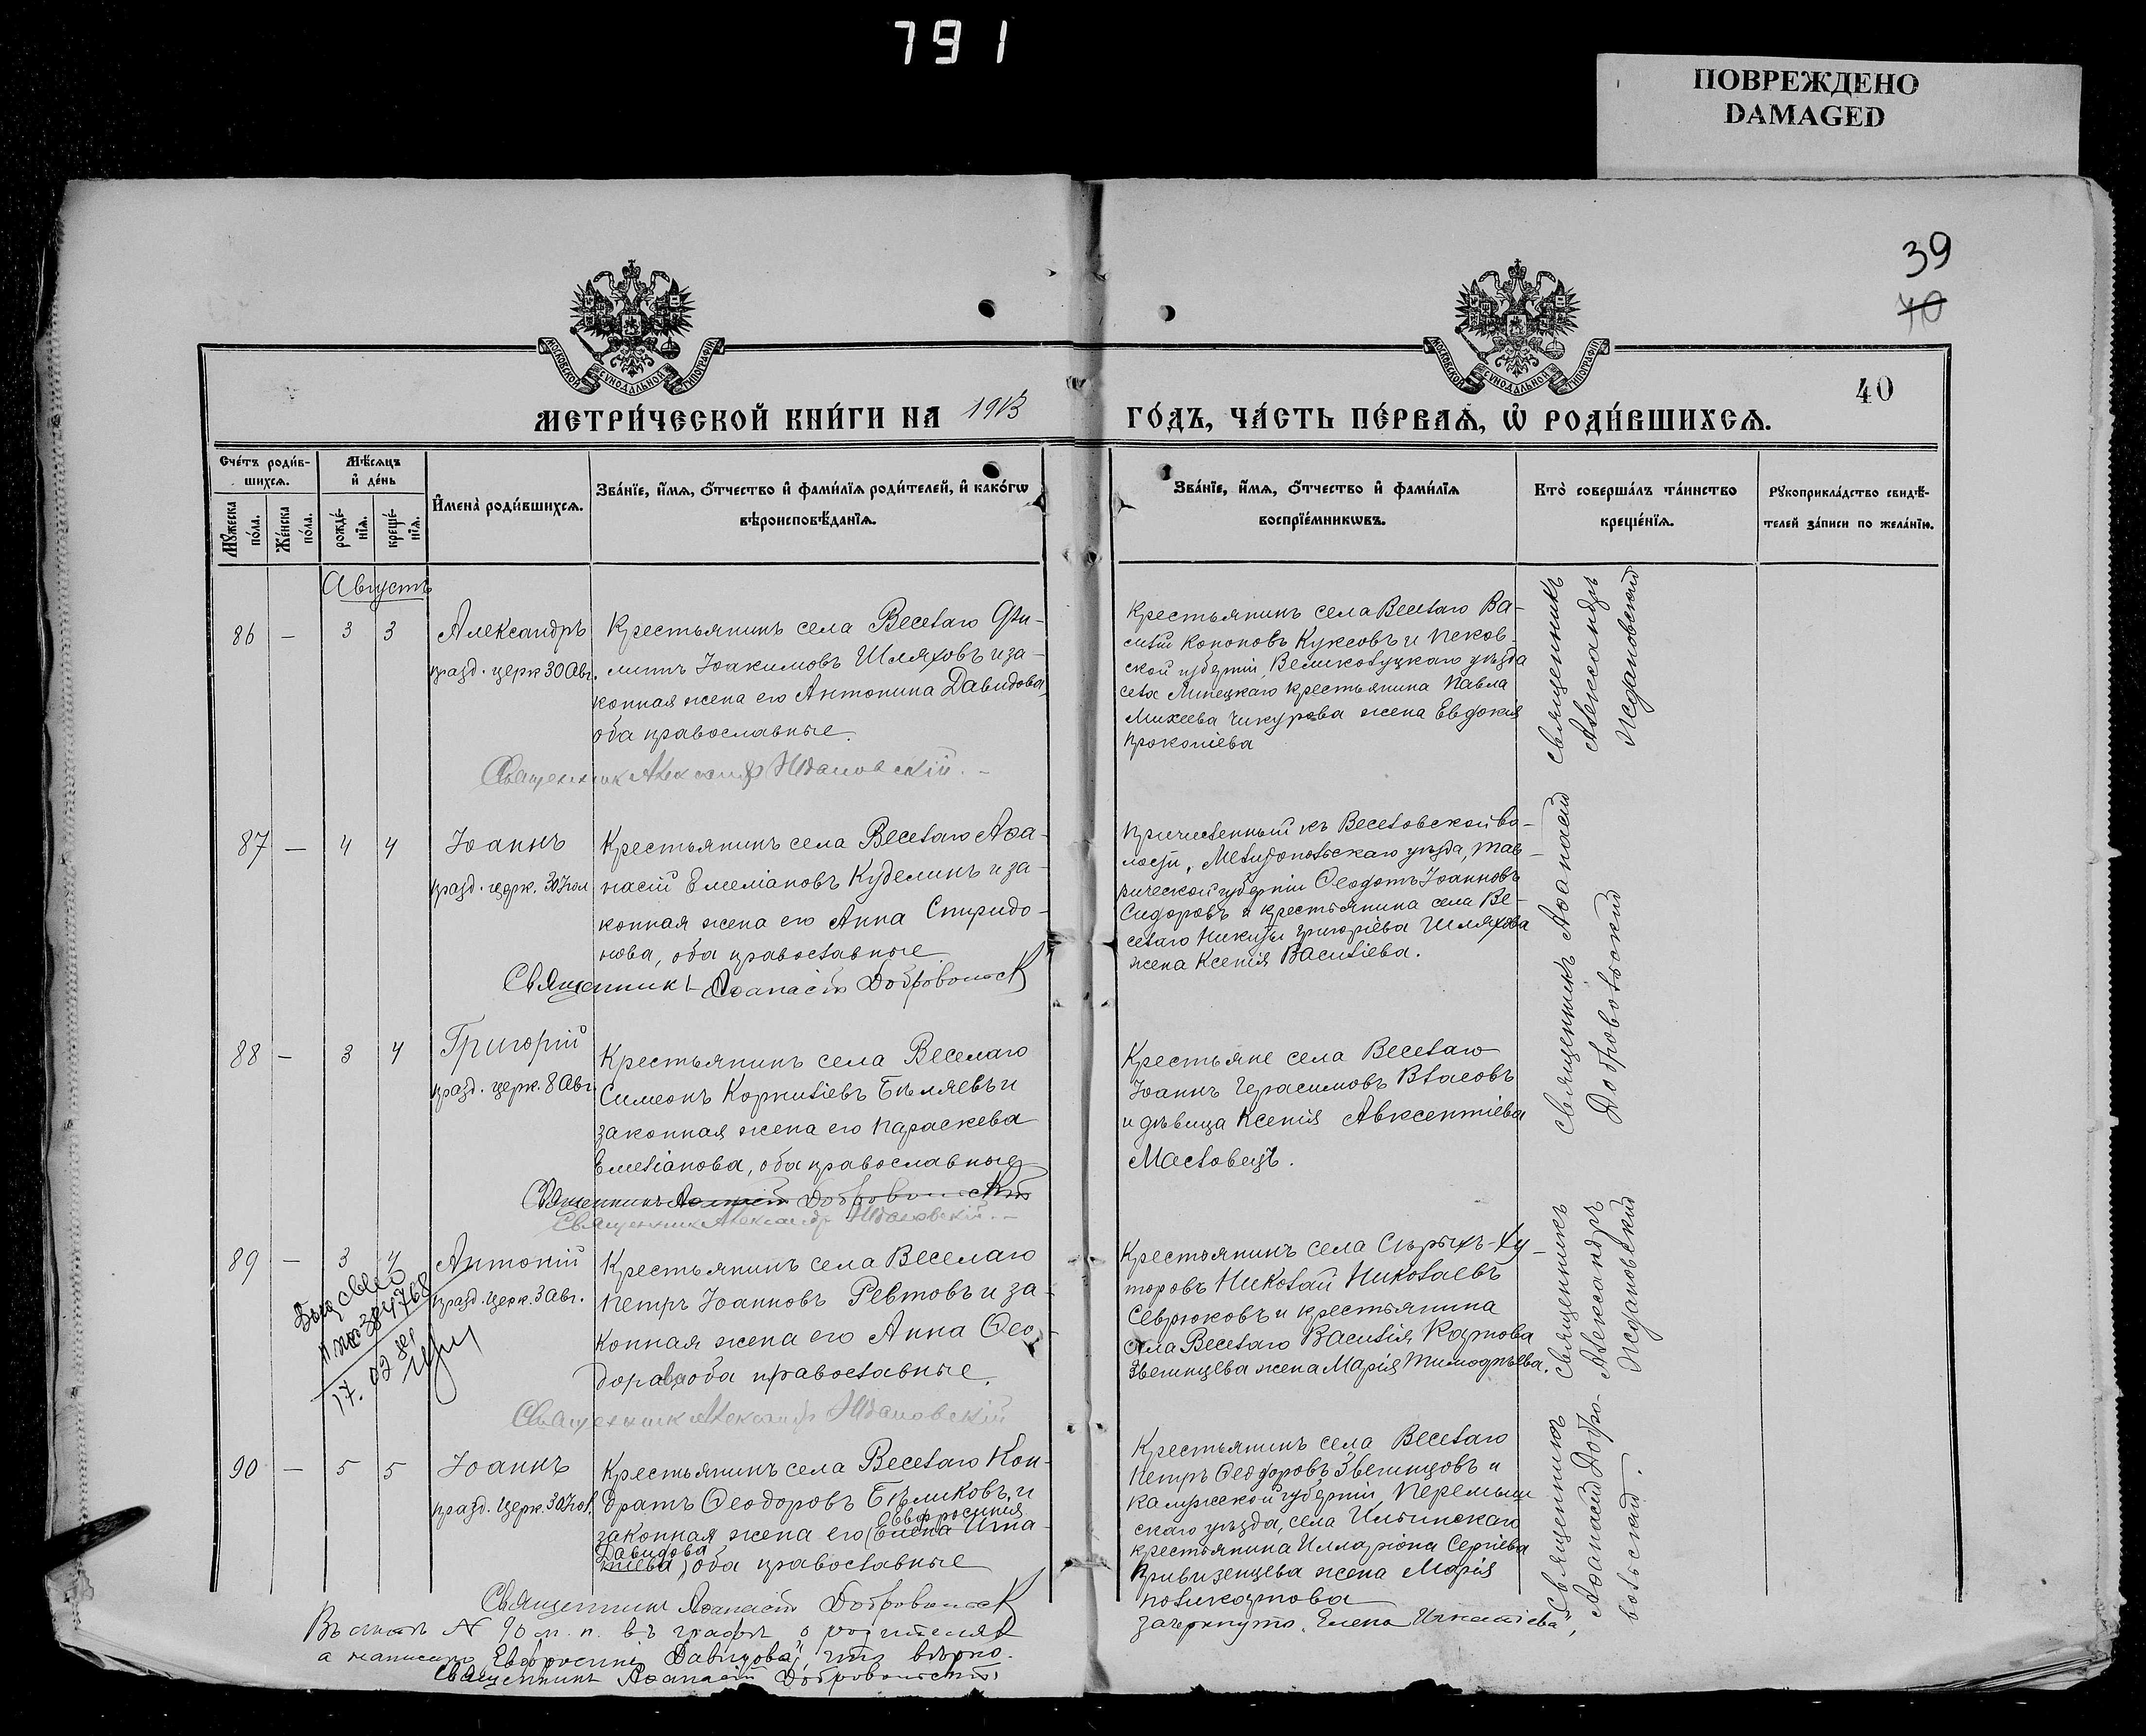 791
ПОВРЕЖДЕНО
DAMAGED
39
40
40
МОСКОВСКОЙ СУНОДАЛЬНОЙ ТИПОГРАФІИ
МОСКОВСКОЙ СУНОДАЛЬНОЙ ТИПОГРАФІИ
МЕТРИ́ЧЕСКОЙ КНИ́ГИ НА 1913 ГО́ДЪ, ЧА́СТЬ ПЕ́РВАѦ, Ѡ҆ РОДИ́ВШИХСѦ.
Сче́тъ роди́в-
шихсѧ.
Мѣ́сѧцъ
и҆ де́нь
Мꙋ́жеска
по́ла.
Же́нска
по́ла.
рожде́-
нїѧ.
креще́-
нїѧ.
И҆мена̀ роди́вшихсѧ.
Зва́нїе, и҆́мѧ, ѻ҆́тчество и҆ фами́лїѧ роди́телей, и҆ како́гѡ
вѣроисповѣ́данїѧ.
Зва́нїе, и҆́мѧ, ѻ҆́тчество и҆ фами́лїѧ
воспрїе́мникѡвъ.
Кто̀ соверша́лъ та́инство
креще́нїѧ.
Рꙋкоприкла́дство свидѣ́-
телей за́писи по жела́нїю.
Августъ
86 — 3 3 Александръ
празд. церк 30 Авг.
Крестьянинъ села Веселаго Фи-
липъ Іоакимовъ Шляховъ и за-
конная жена его Антонина Давидова,
оба православные.
Священник Александр Ждановскій.
Крестьянинъ села Веселаго Ва-
силій Кононовъ Куксовъ и Псков-
ской губерніи, Великолуцкаго уѣзда
села Липецкаго крестьянина Павла
Михеева Чикурова жена Евдокія
Прокопіева
Священникъ
Александръ
Ждановскій
87 — 4 4 Іоаннъ
празд. церк. 30 Іюл
Крестьянинъ села Веселаго Аѳа-
насій Емеліановъ Куделинъ и за-
конная жена его Анна Спиридо-
нова, оба православные
Священникъ Аѳанасій Добровольск
Причисленный къ Веселовской во-
лости, Мелитопольскаго уѣзда, Тав-
рической губерніи Ѳеодотъ Іоанновъ
Сидоровъ и крестьянина села Ве-
селаго Никиты Григоріева Шляхова
жена Ксенія Василіева.
Священникъ Аѳанасій
Добровольскій
88 — 3 4 Григорій
празд. церк. 8 Авг.
Крестьянинъ села Веселаго
Симеонъ Корниліевъ Бѣляевъ и
законная жена его Параскева
Емеліанова, оба православные
Священникъ Аѳанасій Добровольскій
Священник Александр Ждановскій.
Крестьяне села Веселаго
Іоаннъ Герасимовъ Власовъ
и дѣвица Ксенія Авксентіева
Масловецъ.
89 — 3 4 Антоній
празд. церк. 3 Авг.
384768
17. 02
Крестьянинъ села Веселаго
Петръ Іоанновъ Ревтовъ и за-
конная жена его Анна Ѳео-
дорова оба православные.
Священник Александр Ждановскій
Крестьянинъ села Сѣрыхъ-Ху-
торовъ Николай Николаевъ
Севрюковъ и крестьянина
села Веселаго Василія Карпова
Звегинцева жена Марія Тимоѳѣева.
Священникъ
Александръ
Ждановскій
90 — 5 5 Іоаннъ
празд. церк.
Крестьянинъ села Веселаго Кон-
дратъ Ѳеодоровъ Бѣликовъ и
Евфросинія
законная жена его (Елена Игна-
Давидова
тіева), оба православные
Священникъ Аѳанасій Добровольск
Крестьянинъ села Веселаго
Петръ Ѳеодоровъ Звегинцовъ и
Калужской губерніи, Перемышл
скаго уѣзда, села Ильинскаго
крестьянина Илларіона Сергіева
жена Марія
Поликарпова
Священникъ
Аѳанасій Добро-
вольскій.
Въ статьѣ № 90 м. п. въ графѣ о родителях зачеркнуто „Елена Игнатіева",
а написано „Евфросинія Давидова", что вѣрно.
Священникъ Аѳанасій Добровольскій